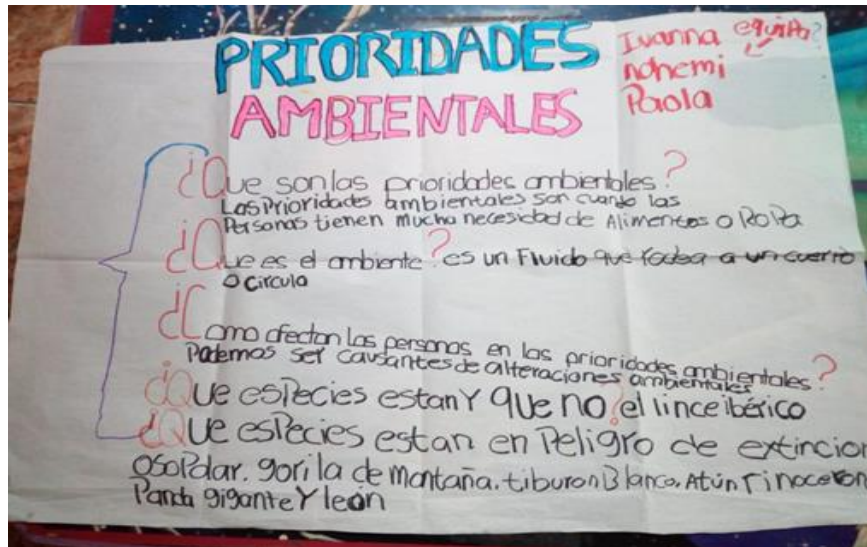 PRIORIDADES
AMBIENTALES
Ivanna equipo?
nohemi
Paola
¿Que son las prioridades ambientales?
Las Prioridades ambientales son cuando las
Personas tienen mucha necesidad de Alimentos o RoPa
¿Que es el ambiente? es un Fluido que rodea a un cuerpo
o circulo
¿Como afectan las personas en las prioridades ambientales?
Podemos ser causantes de alteraciones ambientales
¿Que esPecies estan Y que no? el lince ibérico
¿Que esPecies estan en Peligro de extincion
Oso Polar. gorila de montaña. tiburon Blanco. Atún rinoceron
Panda gigante Y león